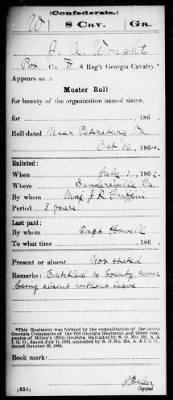 (Confederate.)
W 8 Cav. Ga.
Pvt Co. F, 8 Reg't Georgia Cavalry.*
Appears on
Muster Roll
for bounty of the organization named above,
for , 186 .
Roll dated Near Petersburg Va
Oct 16, 1864.
Enlisted:
When July 1, 1862.
Where Sandersville Ga.
By whom Maj J. R. Griffin
Period 3 years
Last paid:
By whom Capt Howell
To what time , 186 .
Present or absent Not stated
Remarks: Entitled to bounty never
being absent without leave
*This Regiment was formed by the consolidation of the seven
Georgia Companies of the 62d Georgia Regiment and three com-
Book mark:
(635) Copyist.